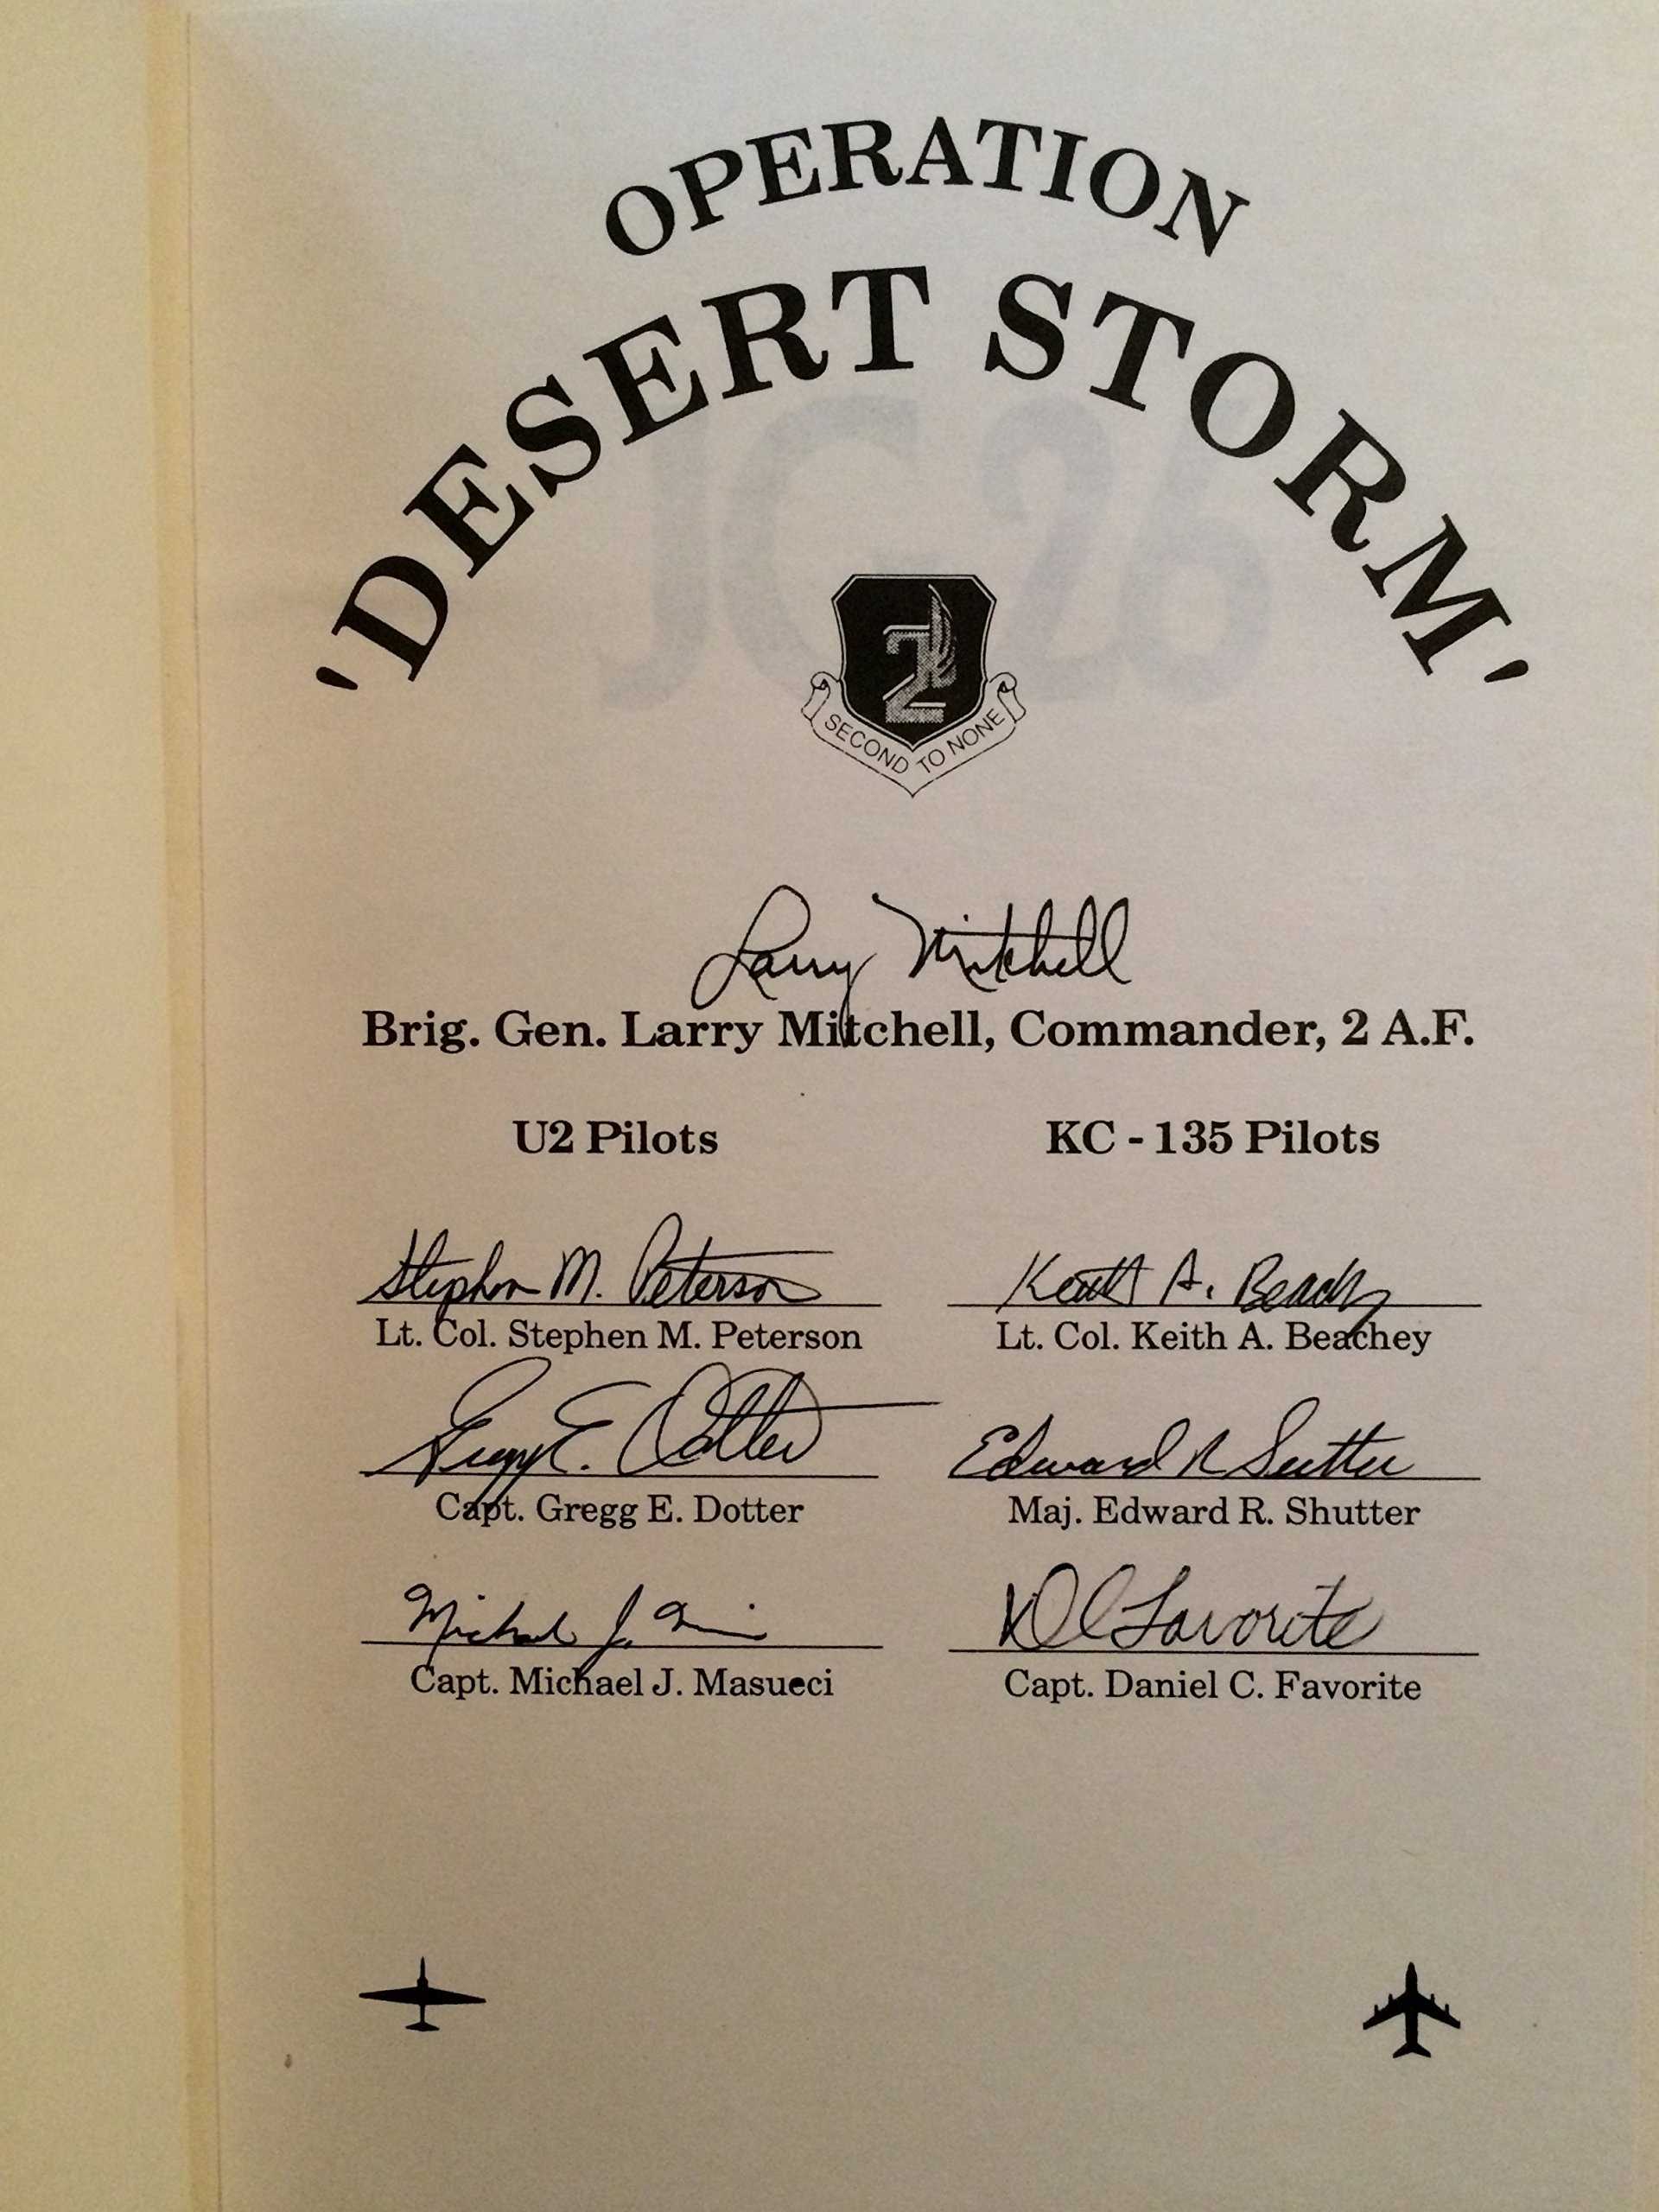 OPERATION
'DESERT STORM'
JG 26
2
SECOND TO NONE
Larry Mitchell
Brig. Gen. Larry Mitchell, Commander, 2 A.F.
U2 Pilots
KC - 135 Pilots
Stephen M. Peterson
Keith A. Beachy
Lt. Col. Stephen M. Peterson
Lt. Col. Keith A. Beachey
Gregg E. Dotter
Edward R Sutter
Capt. Gregg E. Dotter
Maj. Edward R. Shutter
Michael J.
D C Favorite
Capt. Michael J. Masueci
Capt. Daniel C. Favorite